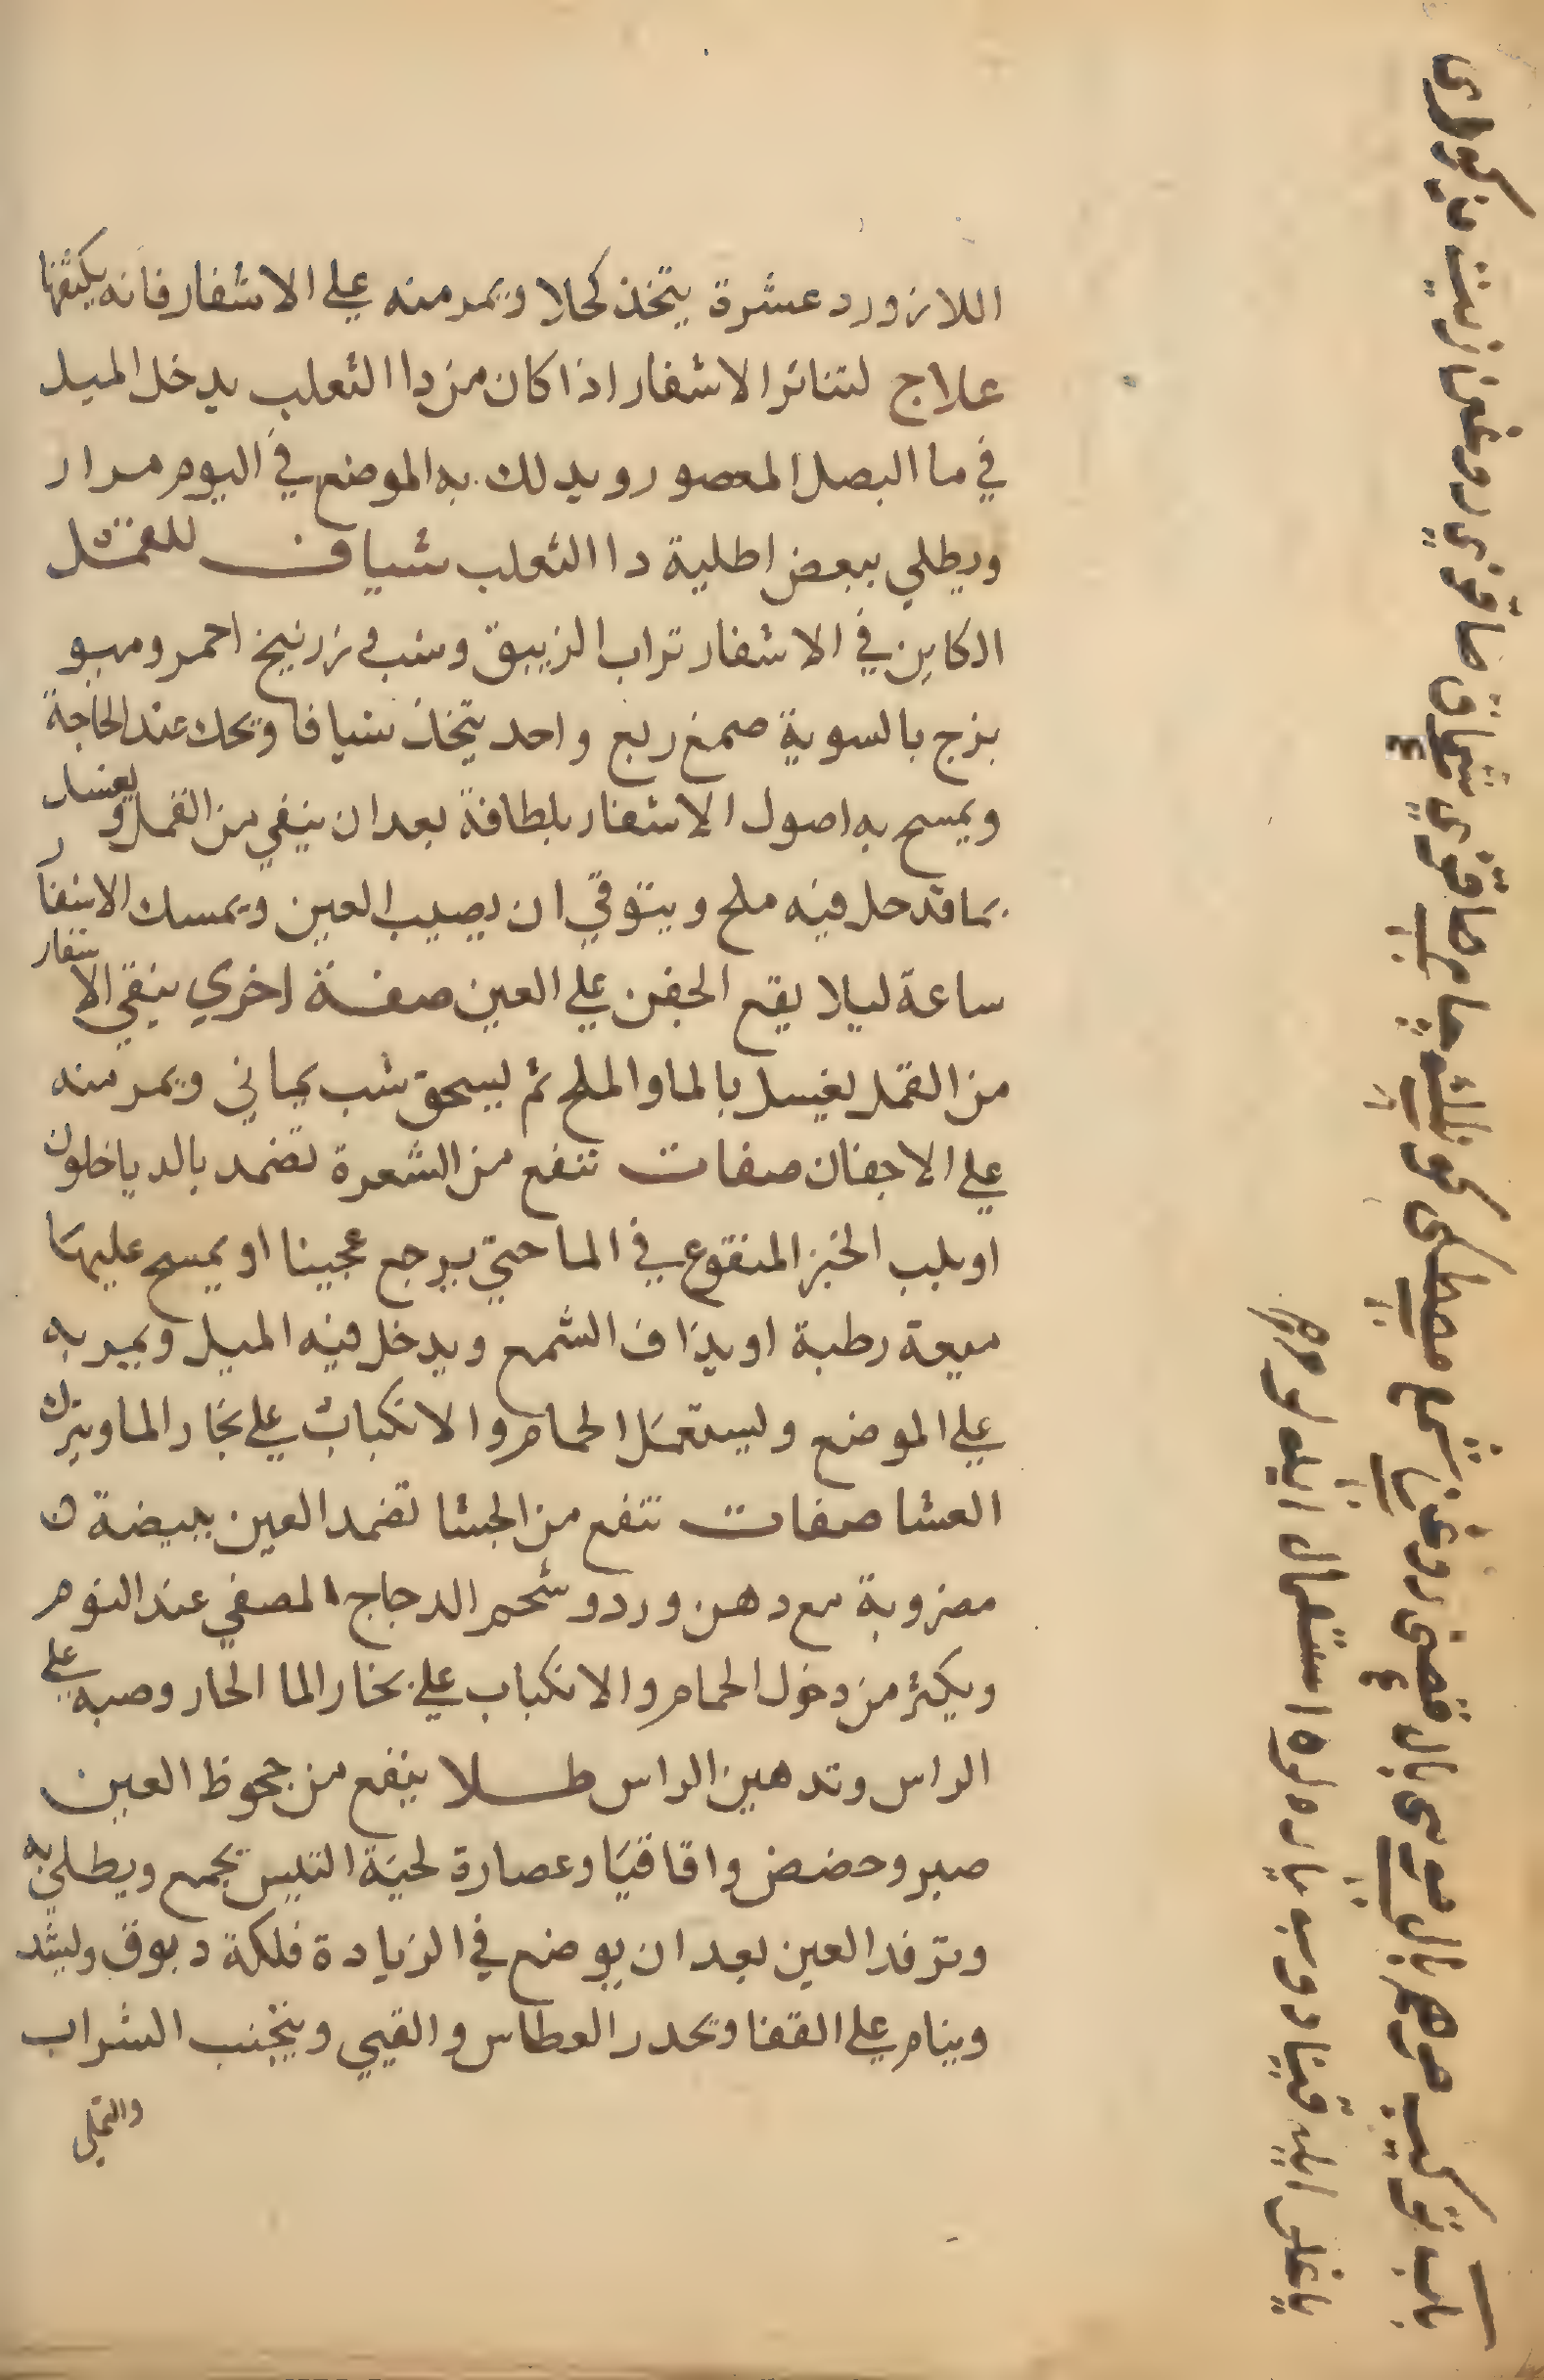 اللازورد عشرة يتخذ كحلا ويمر منه علي الاشفار فانه يكثفها
علاج لتناثر الاشفار اذا كان من دا الثعلب يدخل الميل
في ما البصل المعصور ويدلك به الموضع في اليوم مرار
ويطلي ببعض اطلية دا الثعلب شياف للقمل
الكاين في الاشفار تراب الزيبق وشب وزرنيخ احمر وميو
بزج بالسوية صمغ ربع واحد يتخذ شيافا ويحك عند الحاجة
ويمسح به اصول الاشفار بلطافة بعد ان ينقي من القمل ويغسل
بما قد حل فيه ملح ويتوقي ان يصيب العين ويمسك الاشفار
ساعة ليلا يقع الجفن علي العين صفة اخري ينقي الاشفار
من القمل يغسل بالما والملح ثم يسحق شب يماني ويمر منه
علي الاجفان صفات تنفع من الشعرة تضمد بالدياخلون
او بلب الخبز المنقوع في الما حتي يرجع عجينا او يمسح عليها
ميعة رطبة او يذاف الشمع ويدخل فيه الميل ويمر به
علي الموضع ويستعمل الحمام والانكباب علي بخار الما ويترك
العشا صفات تنفع من الجسا تضمد العين ببيضة
مضروبة مع دهن ورد وشحم الدجاج المصفي عند النوم
ويكثر من دخول الحمام والانكباب علي بخار الما الحار وصبه علي
الراس وتدهين الراس طلا ينفع من جحوظ العين
صبر وحضض واقاقيا وعصارة لحية التيس يجمع ويطلي به
وترفد العين بعد ان يوضع في الزيادة فلكة دبوق وليشد
وينام علي القفا ويحدر العطاس والقيي ويتجنب الشراب
والتملي
باب تركيب مرهم بال مومي بال قصي روغن شمع مصطكى كونلك صاقزي روغن زيت
ياغلى ايله قينادوب ياره لره استعمال ايده لر